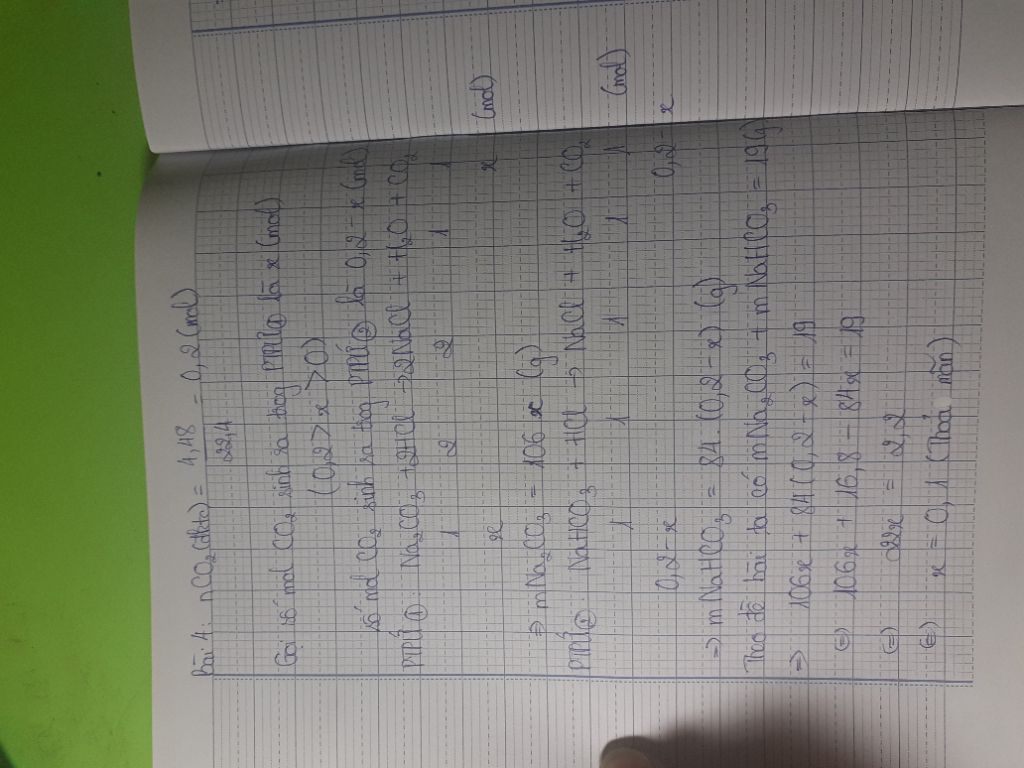 Bài 4: nCO2(đktc) = 4,48 = 0,2 (mol)
22,4
Gọi số mol CO2 sinh ra trog PTPƯ① là x (mol)
(0,2 > x > 0)
số mol CO2 sinh ra trog PTPƯ② là 0,2 - x (mol)
PTPƯ①: Na2CO3 + 2HCl → 2NaCl + H2O + CO2
1 2 2 1 1
x x (mol)
⇒ mNa2CO3 = 106x (g)
PTPƯ②: NaHCO3 + HCl → NaCl + H2O + CO2
1 1 1 1 1 (mol)
0,2 - x 0,2 - x
⇒ mNaHCO3 = 84.(0,2 - x) (g)
Theo đề bài ta có mNa2CO3 + mNaHCO3 = 19(g)
⇒ 106x + 84(0,2 - x) = 19
(=) 106x + 16,8 - 84x = 19
(=) 22x = 2,2
(=) x = 0,1 (Thoả mãn)